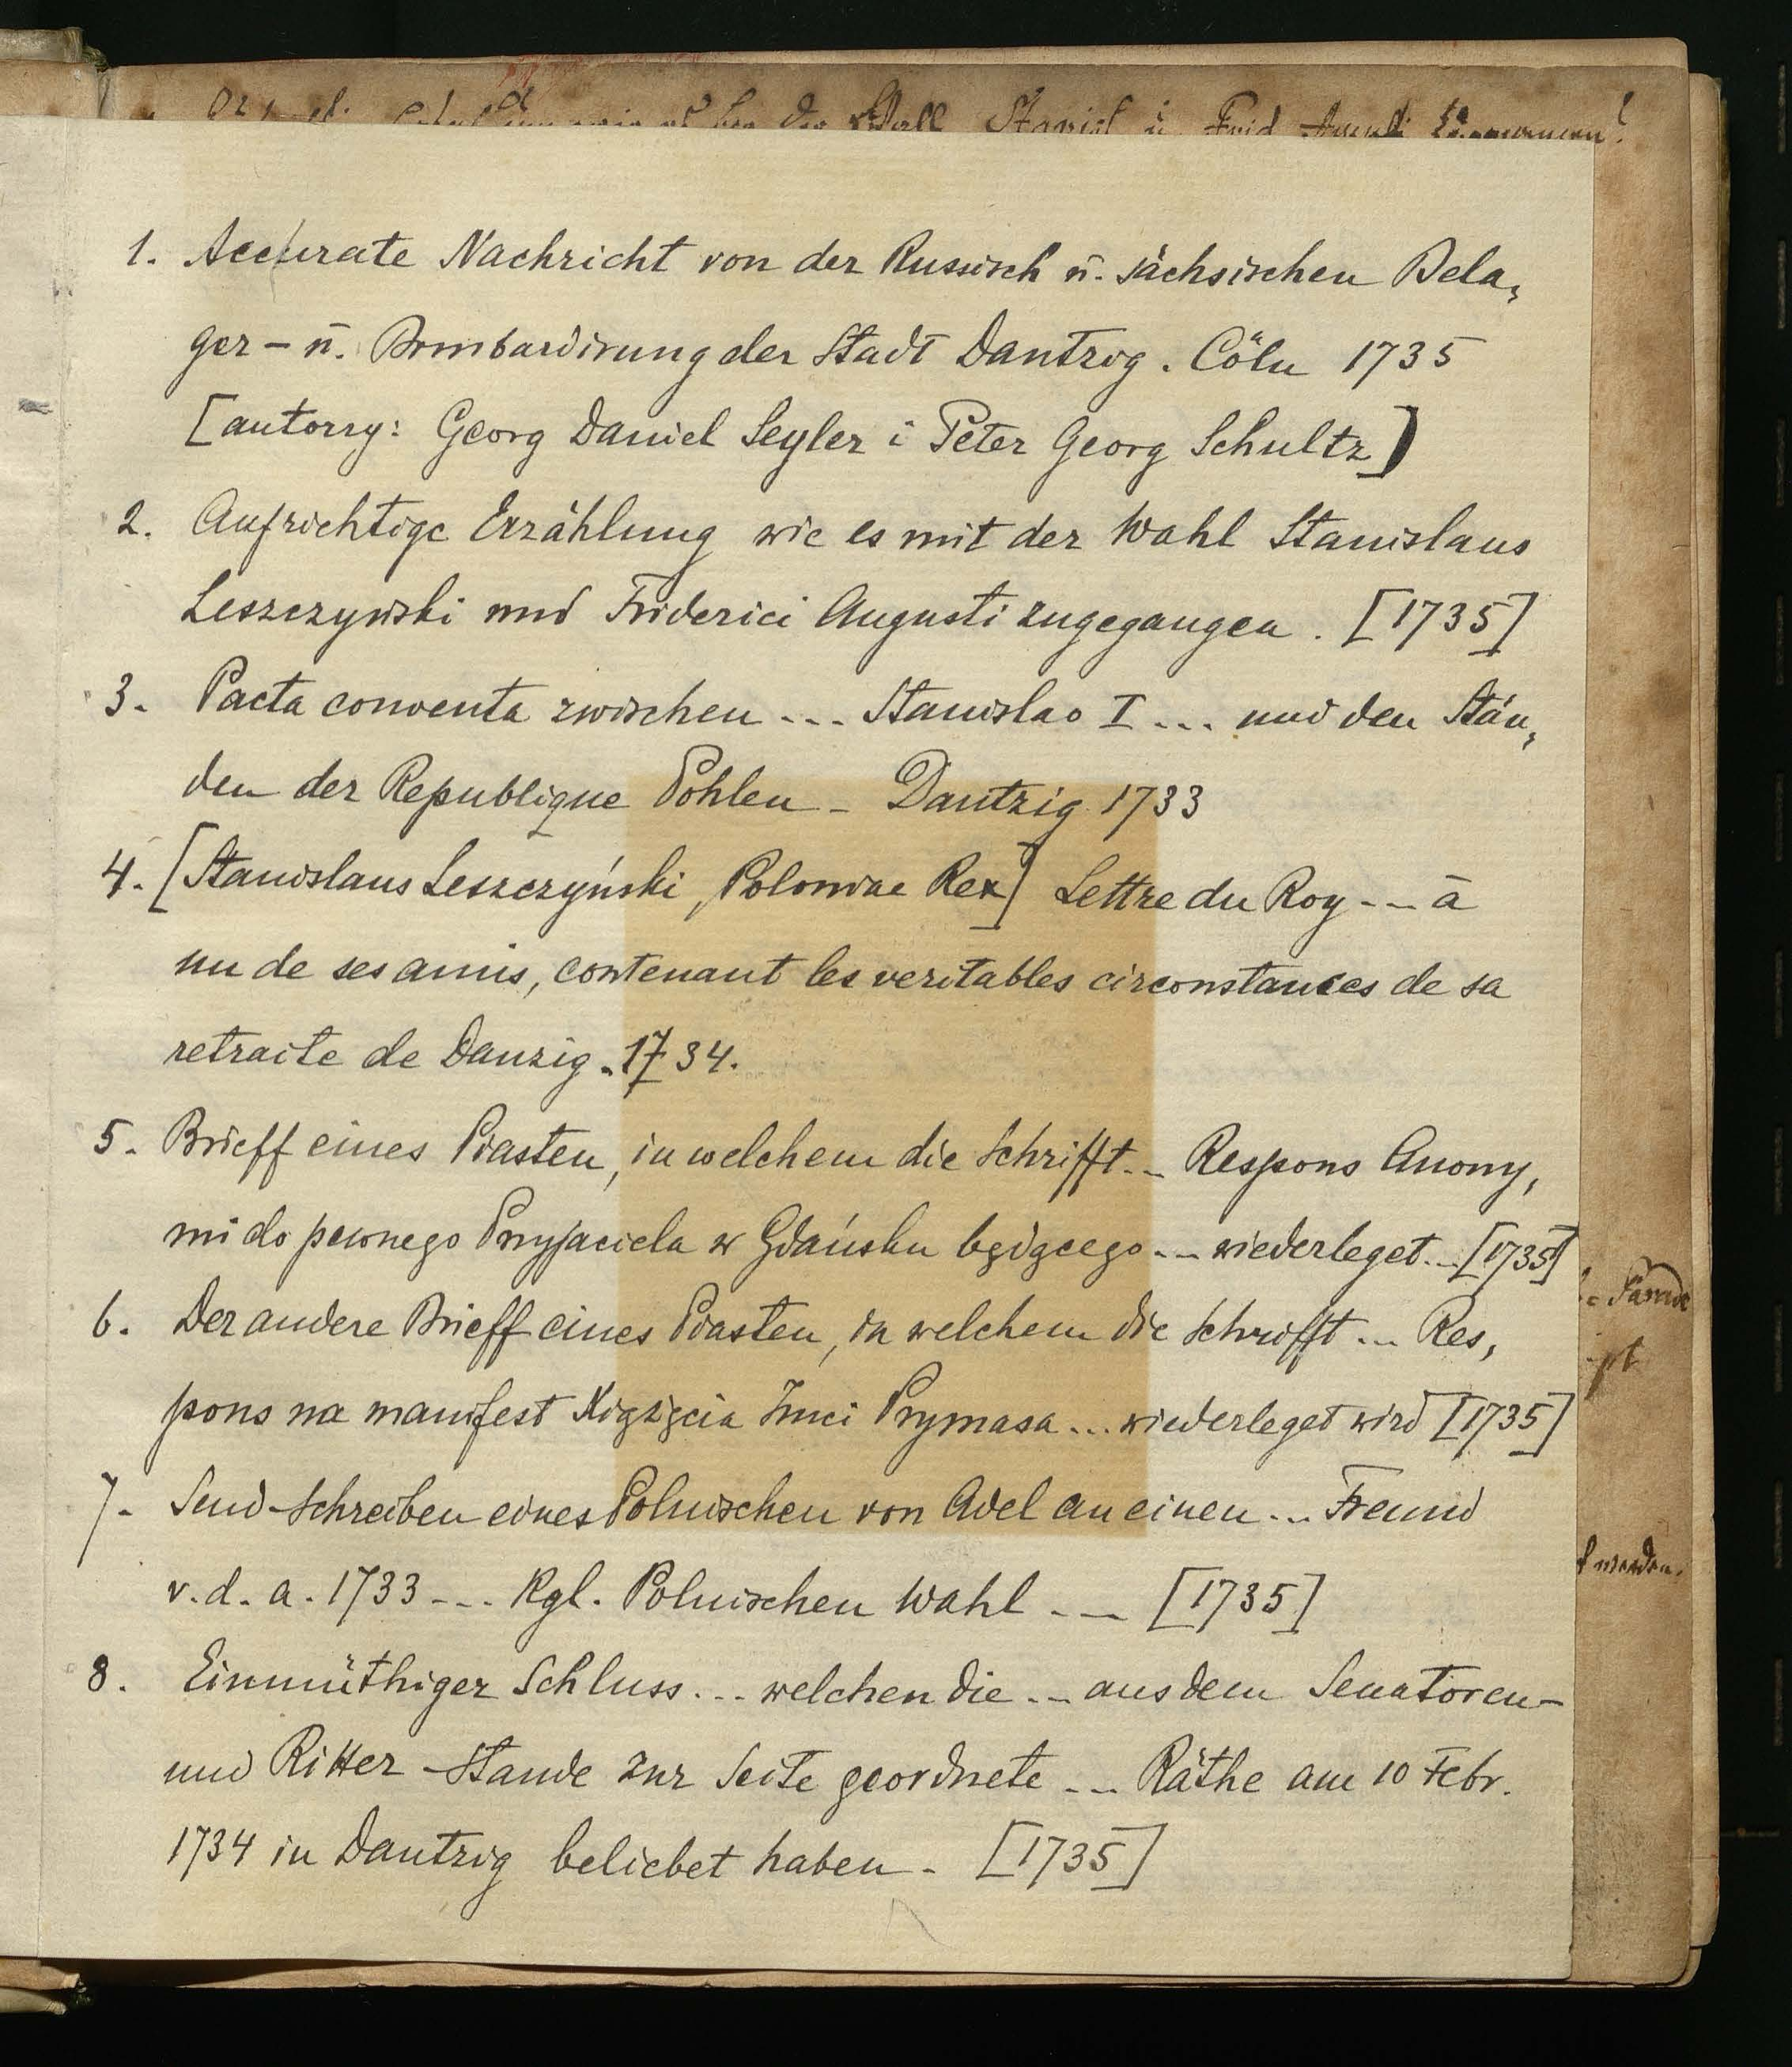 1. Accurate Nachricht von der Russisch u. sächsischen Bela,
ger - u. Bombardirung der Stadt Dantzig. Cöln 1735
[autorzy: Georg Daniel Seyler i Peter Georg Schultz]
2. Aufrichtige Erzählung wie es mit der Wahl Stanislaus
Leszczynski und Friderici Augusti zugegangen. [1735]
3. Pacta conventa zwischen ... Stanislao I ... und den Stän,
den der Republique Pohlen - Dantzig 1733
4. [Stanislaus Leszczyński, Poloniae Rex] Lettre du Roy ... à
un de ses amis, contenant les veritables circonstances de sa
retraite de Danzig. 1734.
5. Brieff eines Piasten, in welchem die Schrifft ... Respons Anony,
mi do pewnego Przyjaciela w Gdańsku będącego ... wiederleget ... [1735]
6. Der andere Brieff eines Piasten, in welchem die Schrifft ... Res,
pons na manifest Xiążęcia Imci Prymasa ... wiederleget wird [1735]
7. Send-Schreiben eines Polnischen von Adel an einen ... Freund
v. d. a. 1733 ... Kgl. Polnischen Wahl ... [1735]
8. Einmüthiger Schluss ... welchen die ... aus dem Senatoren-
und Ritter-Stande zur Seite geordnete ... Räthe am 10 Febr.
1734 in Dantzig beliebet haben. [1735]